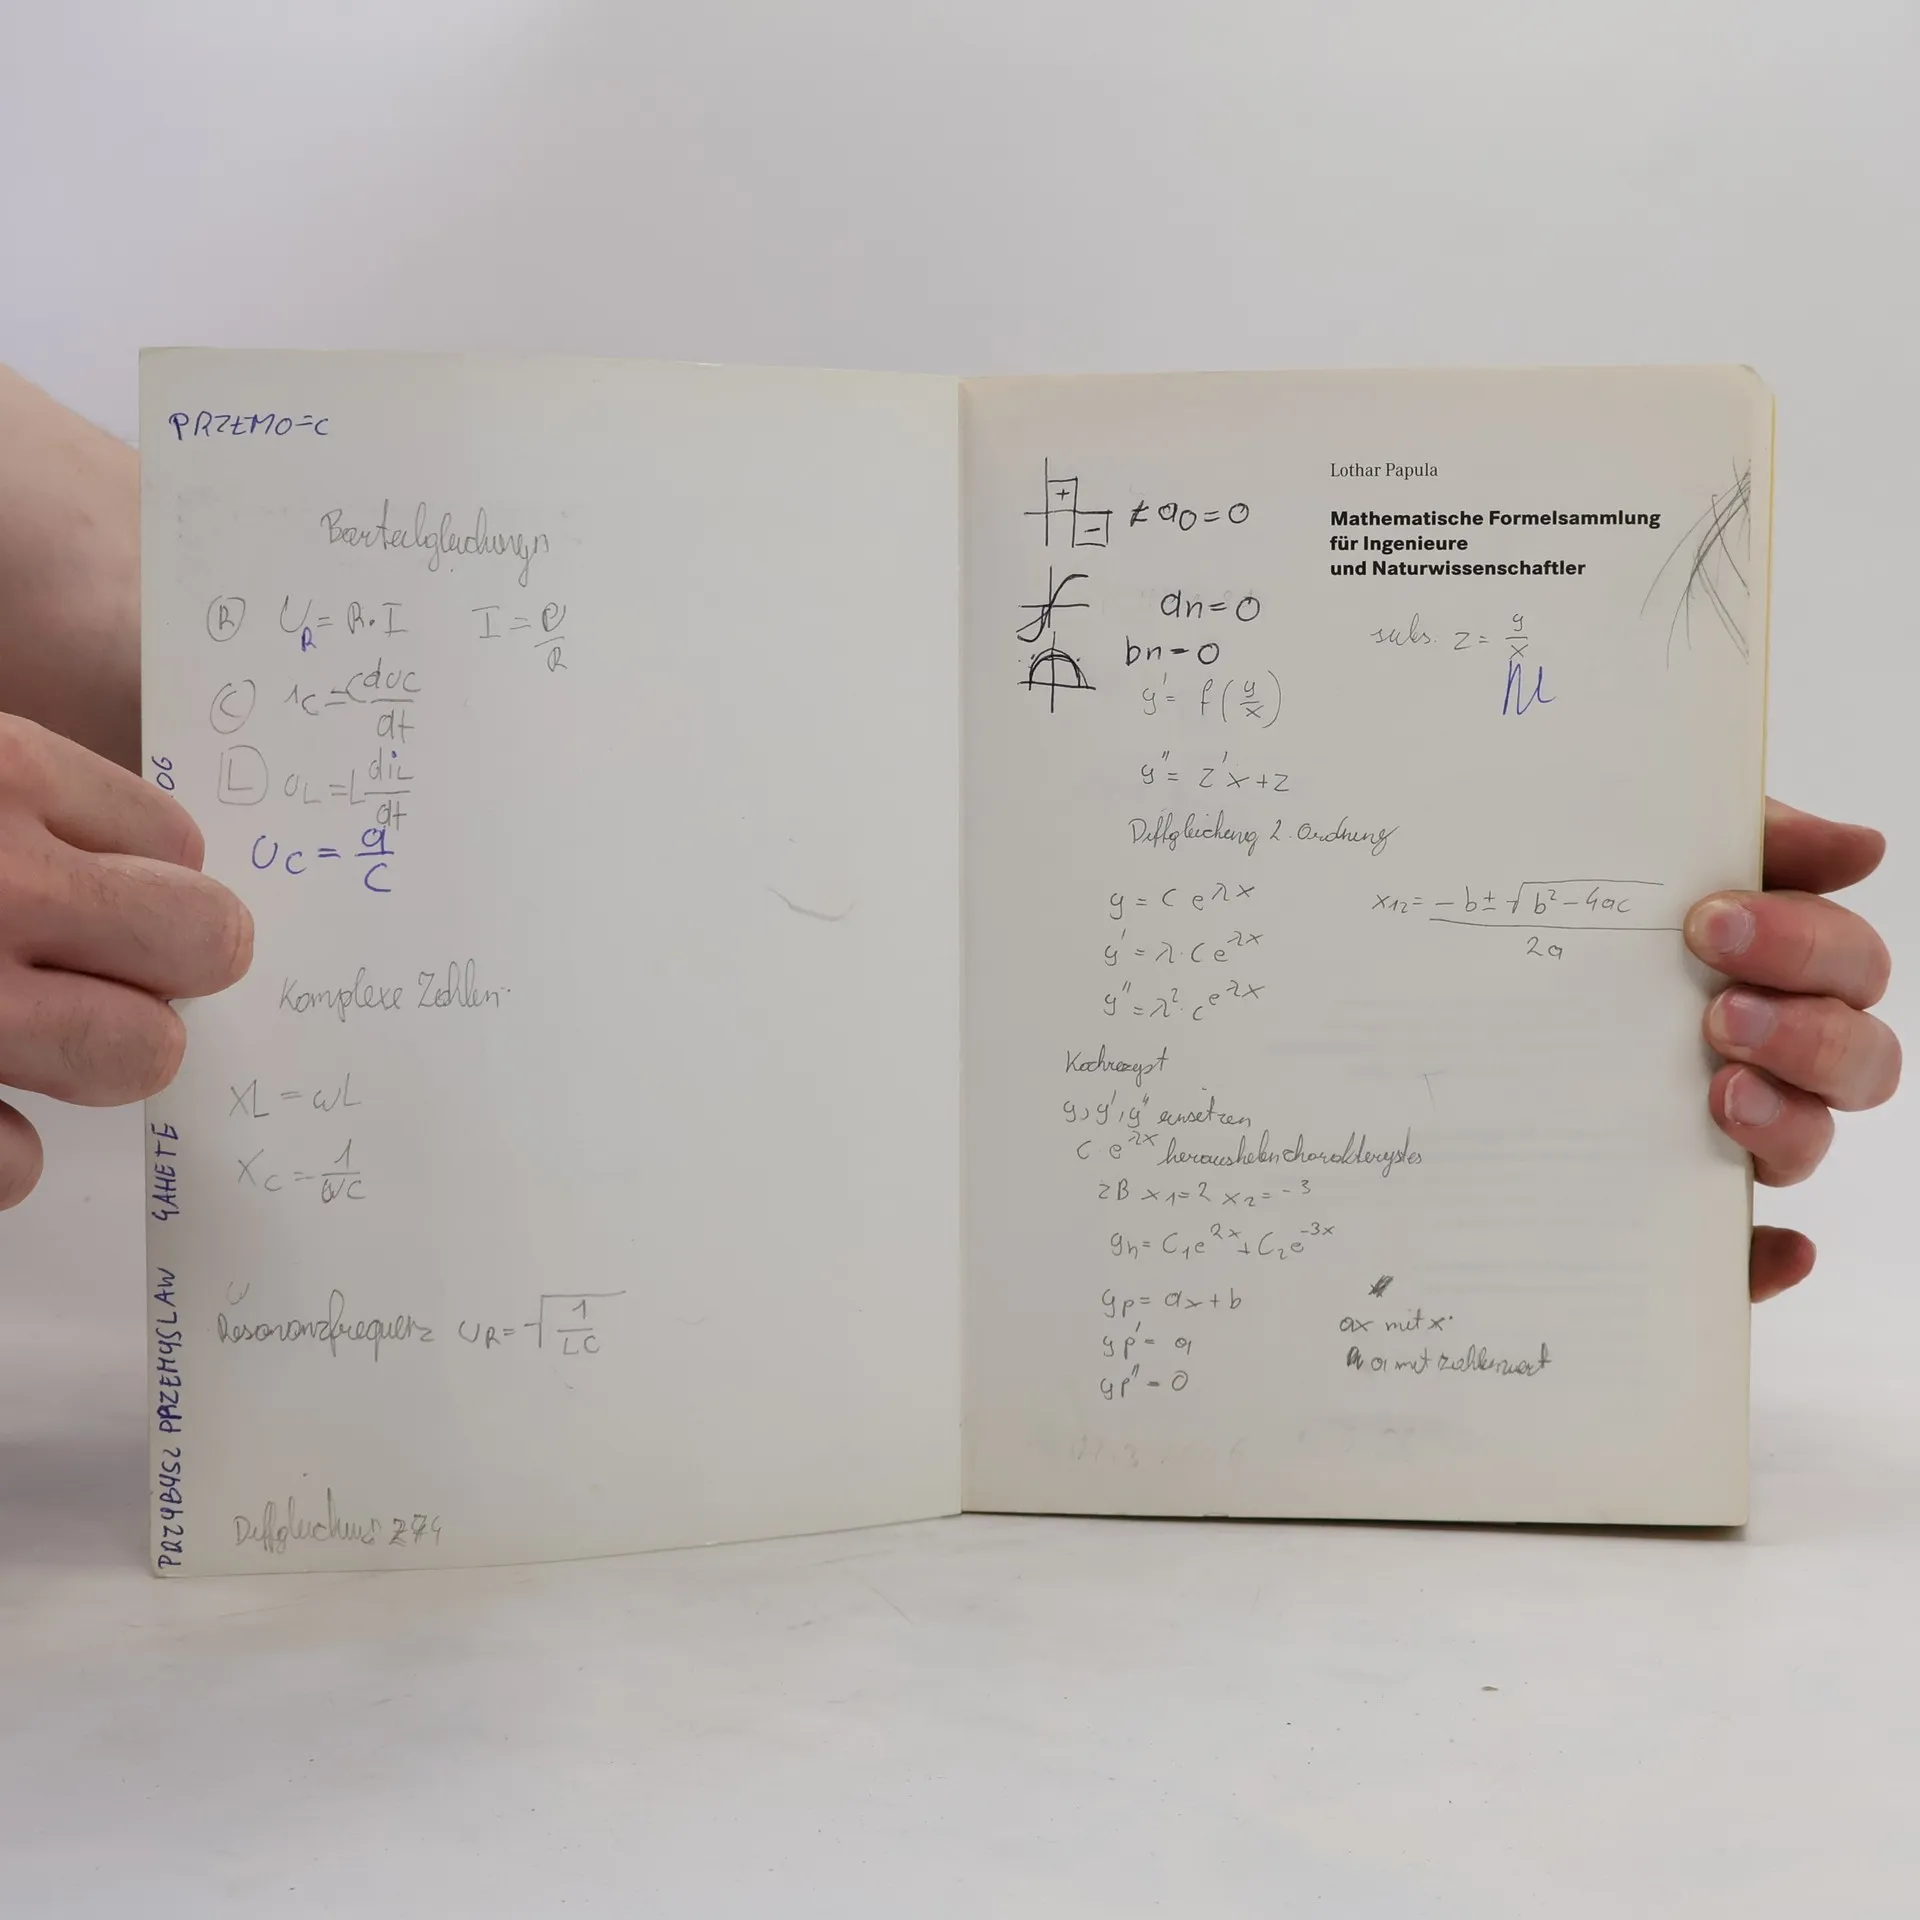 PRZEMO=C
Bauteilgleichungen
R U_R = R·I I = U/R
C i_C = C du_C/dt
L U_L = L di_L/dt
U_C = q/C
Komplexe Zahlen
XL = ωL
X_C = 1/ωC
ω
Resonanzfrequenz ω_R = √(1/LC)
Diffgleichung 274
PRZYBYSZ PRZEMYSLAW GAHETE 06
Lothar Papula
Mathematische Formelsammlung
für Ingenieure
und Naturwissenschaftler
+
−
a0=0
an=0
bn=0
subs. z = y/x
y' = f(y/x)
y'' = z'x+z
Diffgleichung 2. Ordnung
y = C e^λx
y' = λ·C e^λx
y'' = λ²·C e^λx
x12 = (−b ± √(b²−4ac))/2a
Kochrezept
y, y', y'' einsetzen
C e^λx herausheben charakterystes
zB x1=2 x2=-3
yh = C1e^2x + C2e^-3x
yp = ax+b
yp' = a
yp'' = 0
ax mit x
a mit zahlenwert